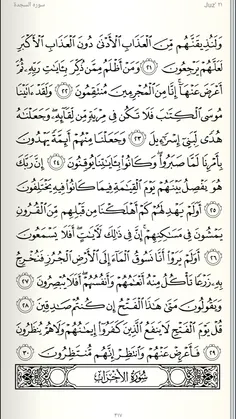 سورة السجدة
وَلَنُذِيقَنَّهُم مِّنَ ٱلْعَذَابِ ٱلْأَدْنَىٰ دُونَ ٱلْعَذَابِ ٱلْأَكْبَرِ
لَعَلَّهُمْ يَرْجِعُونَ ٢١ وَمَنْ أَظْلَمُ مِمَّن ذُكِّرَ بِـَٔايَٰتِ رَبِّهِۦ ثُمَّ
أَعْرَضَ عَنْهَآ إِنَّا مِنَ ٱلْمُجْرِمِينَ مُنتَقِمُونَ ٢٢ وَلَقَدْ ءَاتَيْنَا
مُوسَى ٱلْكِتَٰبَ فَلَا تَكُن فِى مِرْيَةٍ مِّن لِّقَآئِهِۦ وَجَعَلْنَٰهُ
هُدًى لِّبَنِىٓ إِسْرَٰٓءِيلَ ٢٣ وَجَعَلْنَا مِنْهُمْ أَئِمَّةً يَهْدُونَ
بِأَمْرِنَا لَمَّا صَبَرُوا۟ وَكَانُوا۟ بِـَٔايَٰتِنَا يُوقِنُونَ ٢٤ إِنَّ رَبَّكَ
هُوَ يَفْصِلُ بَيْنَهُمْ يَوْمَ ٱلْقِيَٰمَةِ فِيمَا كَانُوا۟ فِيهِ يَخْتَلِفُونَ
٢٥ أَوَلَمْ يَهْدِ لَهُمْ كَمْ أَهْلَكْنَا مِن قَبْلِهِم مِّنَ ٱلْقُرُونِ
يَمْشُونَ فِى مَسَٰكِنِهِمْ إِنَّ فِى ذَٰلِكَ لَـَٔايَٰتٍ أَفَلَا يَسْمَعُونَ
٢٦ أَوَلَمْ يَرَوْا۟ أَنَّا نَسُوقُ ٱلْمَآءَ إِلَى ٱلْأَرْضِ ٱلْجُرُزِ فَنُخْرِجُ
بِهِۦ زَرْعًا تَأْكُلُ مِنْهُ أَنْعَٰمُهُمْ وَأَنفُسُهُمْ أَفَلَا يُبْصِرُونَ ٢٧
وَيَقُولُونَ مَتَىٰ هَٰذَا ٱلْفَتْحُ إِن كُنتُمْ صَٰدِقِينَ ٢٨
قُلْ يَوْمَ ٱلْفَتْحِ لَا يَنفَعُ ٱلَّذِينَ كَفَرُوٓا۟ إِيمَٰنُهُمْ وَلَا هُمْ يُنظَرُونَ
٢٩ فَأَعْرِضْ عَنْهُمْ وَٱنتَظِرْ إِنَّهُم مُّنتَظِرُونَ ٣٠
سُورَةُ الأَحْزَابِ
٤١٧